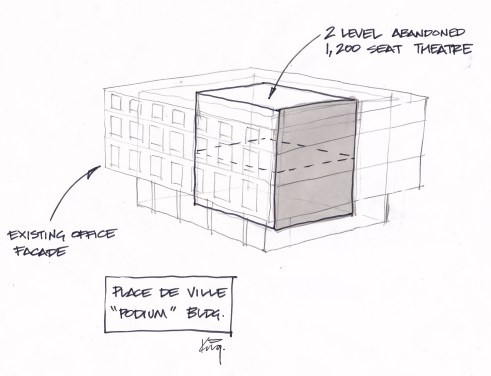 2 LEVEL ABANDONED
1,200 SEAT THEATRE
EXISTING OFFICE
FACADE
PLACE DE VILLE
"PODIUM" BLDG.